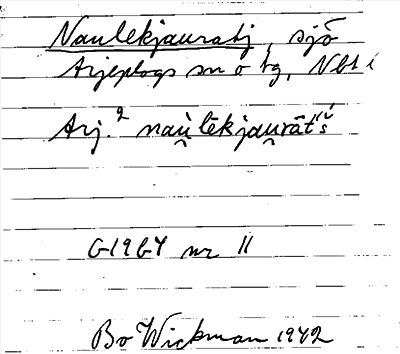 Naulekjauratj, sjö
Arjeplogs sn o tg, Nbt l
Arj.² nau̯lēkjau̯rāt́š́
G1967 nr 11
Bo Wickman 1942